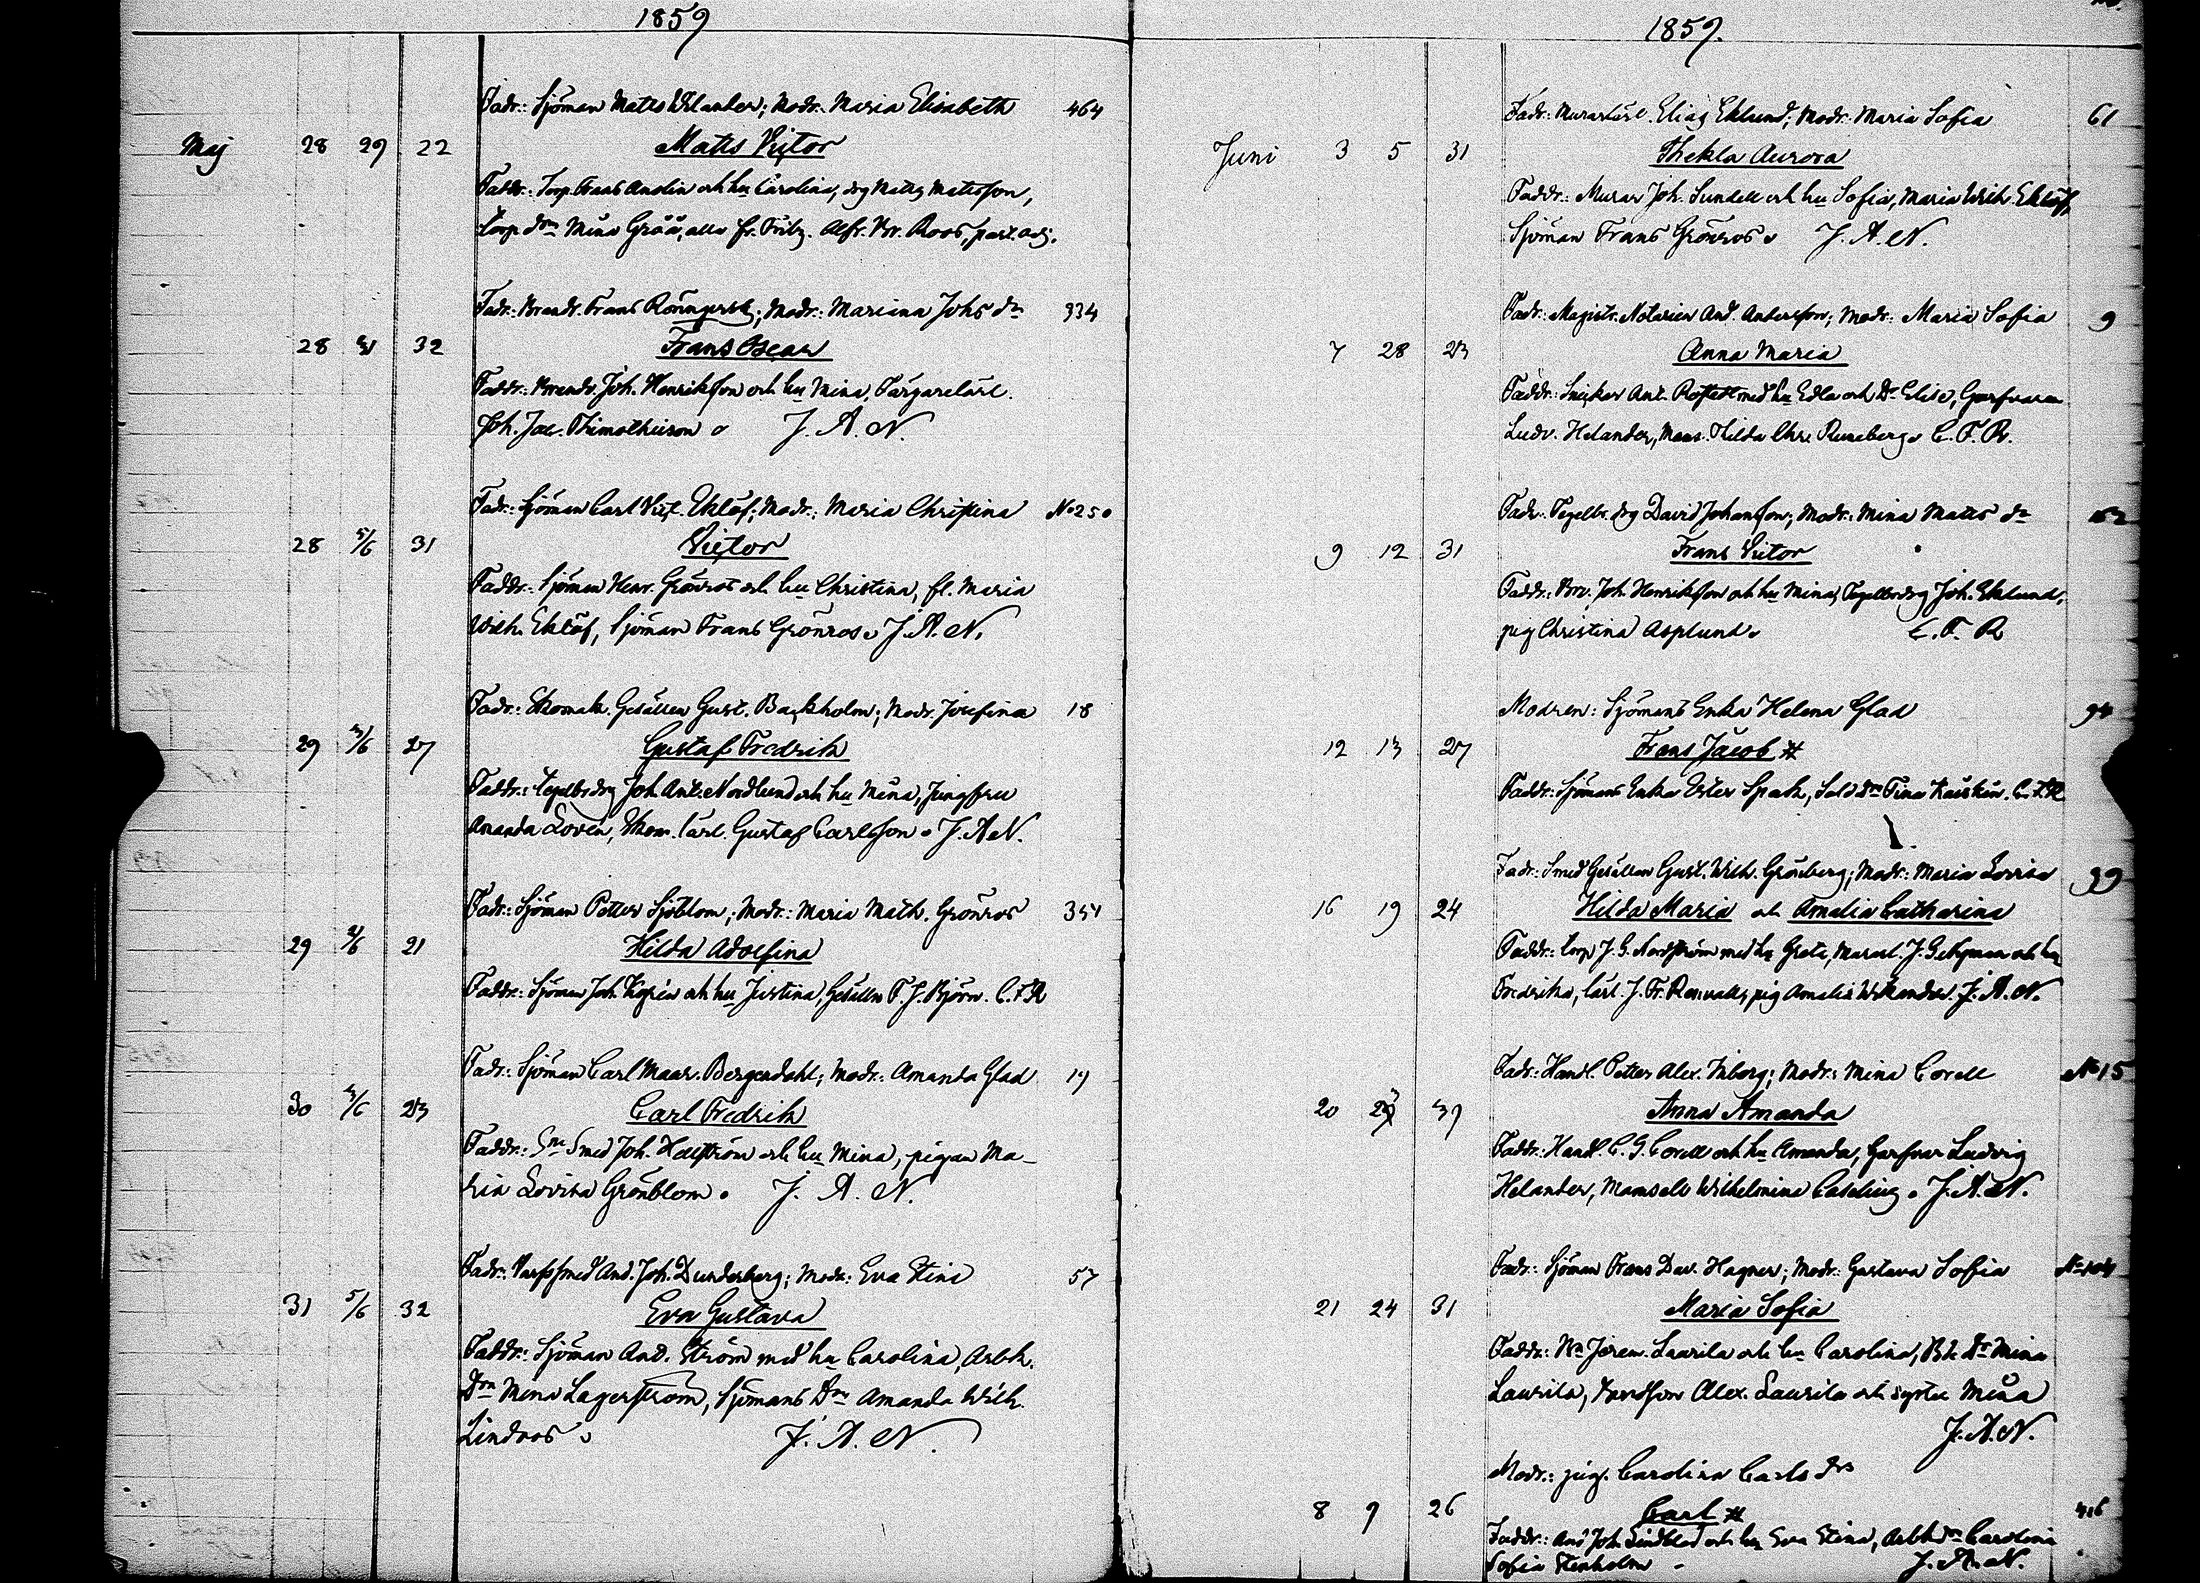 1859
Fadr: Sjöman Matts Wilander; Modr: Maria Elisabeth 464
Maj 28 29 22 Matts Victor
Faddr: Torp. Frans Amolin och hu Carolina, drg Matts Mattsson,
Torp. dn Mina Grää, alla fr. Fritz. Alfr. Br. Roos, past. adj.
Fadr: Brandv. Frans Rönnqvist; Modr: Mariana Johs dr 334
28 31 32 Frans Oscar
Faddr: Brandv. Joh. Henriksson och hu Mina, Färgarelärl.
Joh. Jac. Thimotheison J. A. N.
Fadr: Sjöman Carl Vict. Eklöf; Modr: Maria Christina No 250
28 5/6 31 Victor
Faddr: Sjöman Henr. Grönros och hu Christina, fl. Maria
Wilh. Eklöf, Sjöman Frans Grönros. J. A. N.
Fadr: Skomak. Gesällen Gust. Backholm; Modr. Josefina 18
29 3/6 27 Gustaf Fredrik
Faddr: Tegelbrdrg Joh. Ant. Nordlund och hu Mina, Jungfru
Amanda Lovén, Skom. lärl. Gustaf Carlsson. J. A. N.
Fadr: Sjöman Petter Sjöblom; Modr: Maria Math. Grönros 354
29 21 Hilda Adolfina
Faddr: Sjöman Joh. och hu Justina, Gesällen F. J. Björn. C. F. R
Fadr: Sjöman Carl Maur. Bergendahl; Modr: Amanda Glad 19
30 23 Carl Fredrik
Faddr: Smed Joh. Hellström och hu Mina, pigan Ma-
ria Lovisa Grönblom. J. A. N.
Fadr: Varfssmed And. Joh. Dunderberg; Modr: Eva Stina 57
31 5/6 32 Eva Gustava
Faddr: Sjöman And. Ström med hu Carolina, Arbk.
Dn Mina Lagerström, Sjömans Dr Amanda Wilh.
Lindroos J. A. N.
1859.
Fadr: Murarlärl. Elias Eklund; Modr: Maria Sofia 61
Juni 3 5 31 Thekla Aurora
Faddr: Murar Joh. Sundell och hu Sofia, Maria Wilh. Eklöf,
Sjöman Frans Grönros J. A. N.
Fadr: Magistr. Notarien And. Andersson; Modr: Maria Sofia 9
7 28 23 Anna Maria
Faddr: Snickar Ant. med hu Edla och Dr Elise, Garfvaren
Ludv. Helander, Mams. Hilda Chr. Runeberg. C. F. R.
Fadr: Tegelbr. drg David Johansson; Modr: Mina Matts dr 152
9 12 31 Frans Victor
Faddr: Brv. Joh. Henriksson och hu Mina, Tegelbrdrg Joh. Eklund,
pig Christina Asplund. C. F. R
Modren: Sjömans Enka Helena Glad 94
12 13 27 Frans Jacob #
Faddr: Sjömans Enka Ester Spak, Sold dn Fina C. F. R
Fadr: Smed Gesällen Gust. Wilh. Grönberg; Modr: Maria Lovisa 99
16 19 24 Hilda Maria och Amalia Catharina
Faddr: Torp J. G. Nordström med hu Greta, J. och hu
Fredrika, lärl. J. Fr. Rosvall, pig Amalia Wikander. J. A. N.
Fadr: Handl. Petter Alex. Inborg; Modr: Mina Corell No 15
20 39 Anna Amanda
Faddr: Handl. C. G. Corell och hu Amanda, Garfvar Ludvig
Helander, Mamsell Wilhelmina Caseling. J. A. N.
Fadr: Sjöman Frans Dav. Hagner; Modr: Gustava Sofia
21 24 31 Maria Sofia
Faddr: Jerem. Laurila och hu Carolina, Dr Mina
Laurila, Alex. Laurila och syster Mina
J. A. N.
Modr: pig. Carolina Carls drs
8 9 26 Carl # 416
Faddr: And Joh. Lindblad och hu Eva Stina, Arbk dn Carolina
Sofia Stenholm - J. A. N.